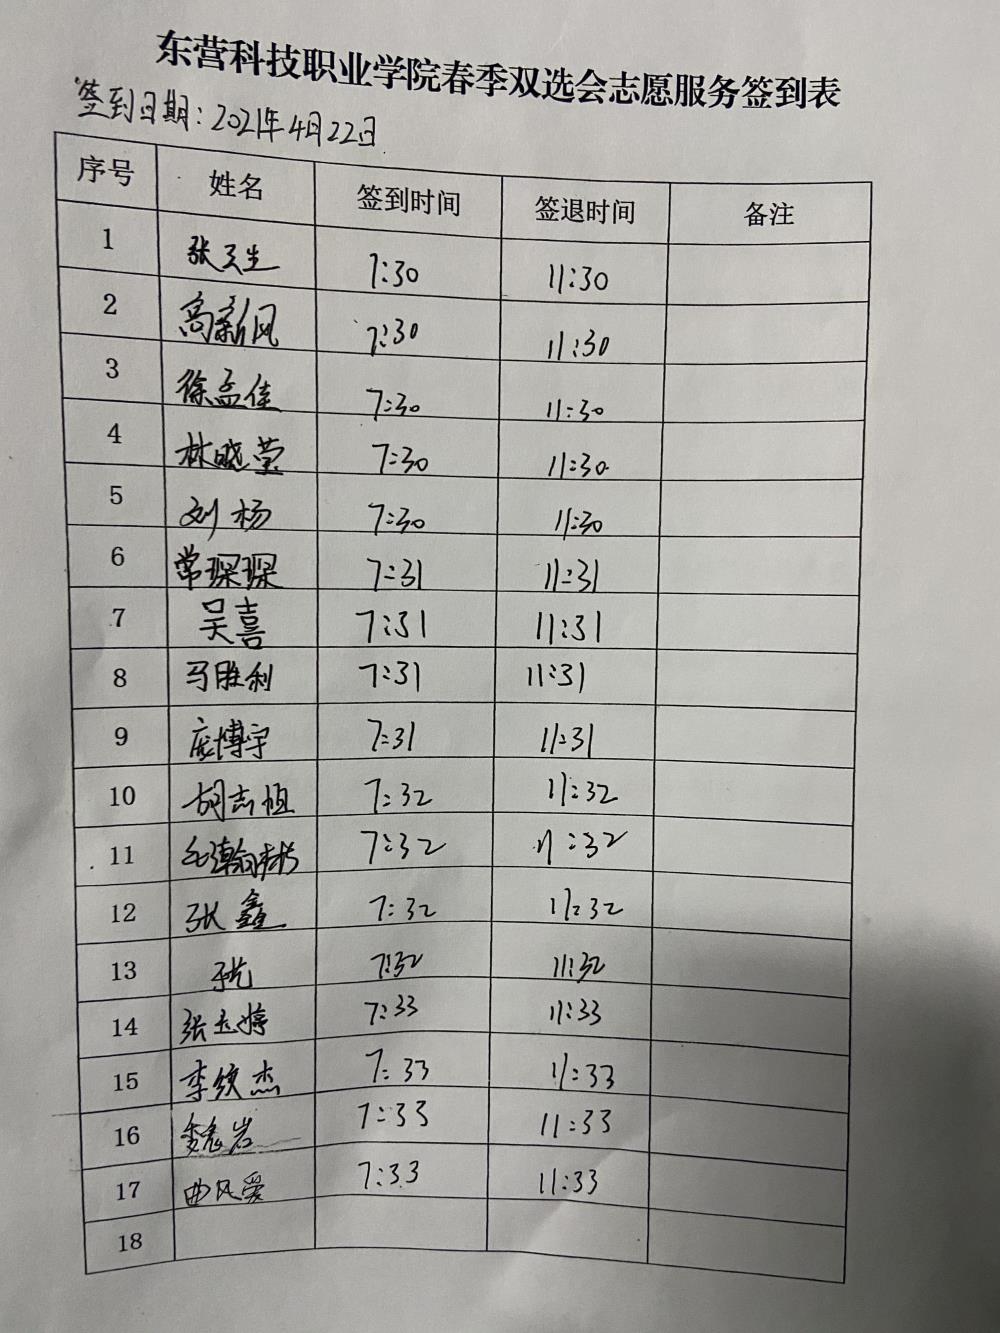 东营科技职业学院春季双选会志愿服务签到表
签到日期：2021年4月22日
序号 姓名 签到时间 签退时间 备注
1 张云生 7:30 11:30
2 高新风 7:30 11:30
3 徐孟佳 7:30 11:30
4 林晓莹 7:30 11:30
5 刘杨 7:30 11:30
6 常琛琛 7:31 11:31
7 吴喜 7:31 11:31
8 马胜利 7:31 11:31
9 庞博宇 7:31 11:31
10 胡志恒 7:32 11:32
11 7:32 11:32
12 张鑫 7:32 11:32
13 7:32 11:32
14 张玉婷 7:33 11:33
15 李纹杰 7:33 11:33
16 魏岩 7:33 11:33
17 曲风爱 7:33 11:33
18